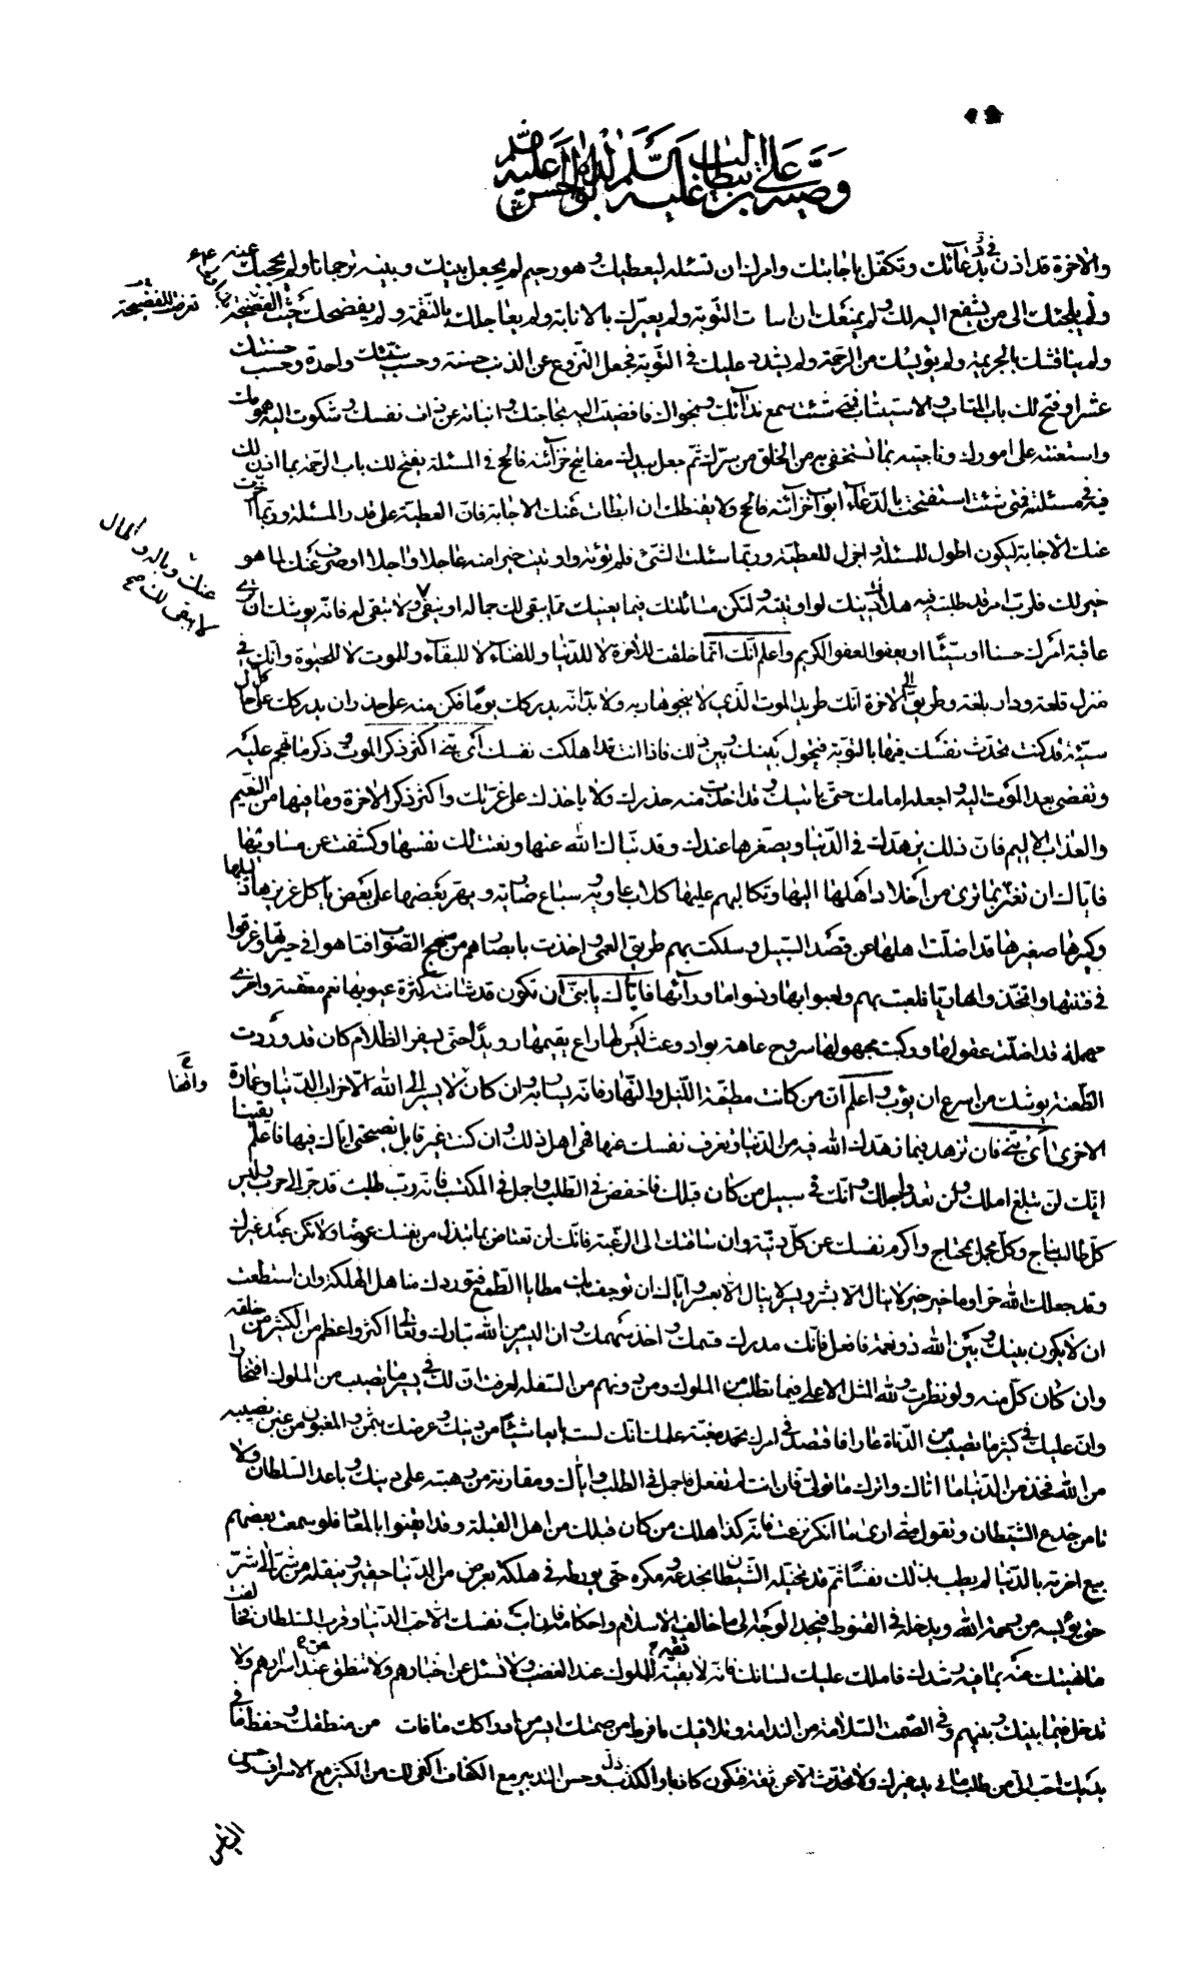 وصيته علي بن ابيطالب عليه السلم لابنه الحسن عليه السلم
والاخرة قد اذن في دعائك وتكفل باجابتك وامرك ان تسئله ليعطيك وهو رحيم لم يجعل بينك وبينه ترجمانا ولم يحجبك عنه
ولم يلجئك الى من يشفع اليه لك ولم يمنعك ان اسات التوبة ولم يعيرك بالانابة ولم يعاجلك بالنقمة ولم يفضحك حيث الفضيحة
تعرضت للفضيحة
ولم يناقشك بالجريمة ولم يؤيسك من الرحمة ولم يشدد عليك في التوبة فجعل النزوع عن الذنب حسنة وحسب سيئتك واحدة وحسب حسنتك
عشرا وفتح لك باب المتاب والاستيتاب فمتى شئت سمع ندائك ونجواك فافضيت اليه بحاجتك وابثثته عن ذات نفسك وشكوت اليه همومك
واستعنته على امورك وناجيته بما تستخفي به من الخلق من سرك ثم جعل بيدك مفاتيح خزائنه فالح في المسئلة يفتح لك باب الرحمة بما اذن لك
فيه في مسئلته فمتى شئت استفتحت بالدعاء ابواب خزائنه فالح ولا يقنطك ان ابطات عنك الاجابة فان العطية على قدر المسئلة وربما اخرت
عنك الاجابة ليكون اطول للمسئلة واجزل للعطية وربما سئلت الشئ فلم تؤته واوتيت خيرا منه عاجلا واجلا او صرف عنك لما هو
خير لك فلرب امر قد طلبته فيه هلاك دينك لو اوتيته ولتكن مسائلتك فيما يعنيك مما يبقى لك جماله او ينفى ولا تبقى له فانه يوشك ان ترى
عنك وباله والمال
لا يبقى لك صح
عاقبة امرك حسنا او سيئا او يعفو العفو الكريم واعلم انك انما خلقت للاخرة لا للدنيا وللفناء لا للبقاء وللموت لا للحيوة وانك في
منزل قلعة ودار بلغة وطريق الى الاخرة انك طريد الموت الذي لا ينجو هاربه ولا بد انه يدركك يوما فكن منه على حذر ان يدركك على حال
سيئة قد كنت تحدث نفسك فيها بالتوبة فيحول بينك وبين ذلك فاذا انت قد اهلكت نفسك اي بني اكثر ذكر الموت وذكر ما تهجم عليه
وتفضي بعد الموت اليه واجعله امامك حتى ياتيك وقد اخذت منه حذرك ولا ياخذك على غرتك واكثر ذكر الاخرة وما فيها من النعيم
والعذاب الاليم فان ذلك يزهدك في الدنيا ويصغرها عندك وقد نباك الله عنها ونعتت لك نفسها وكشفت عن مساويها
فاياك ان تغتر بما ترى من اخلاد اهلها اليها وتكالبهم عليها كلاب عاوية وسباع ضارية ويهر بعضها على بعض ياكل عزيزها ذليلها
وكبيرها صغيرها قد اضلت اهلها عن قصد السبيل وسلكت بهم طريق العمى واخذت بابصارهم من منهج الصواب فتاهوا في حيرتها وغرقوا
في فتنتها واتخذوها ربا فلعبت بهم ولعبوا بها ونسوا ما ورائها فاياك يا بني ان تكون قد شانته كثرة عيوبها نعم معقلة واخرى
مهملة قد اضلت عقولها وركبت مجهولها سروح عاهة بواد وعث ليس لها راع يقيمها رويدا حتى يسفر الظلام كان قد وردت
الظعينة يوشك من اسرع ان يؤب واعلم ان من كانت مطيته الليل والنهار فانه يسار به وان كان لا يسير الى الله الا خراب الدنيا وعمارة
الاخرى اي بني فان تزهد فيما زهدك الله فيه من الدنيا وتعزف نفسك عنها فهي اهل ذلك وان كنت غير قابل نصيحتي اياك فيها فاعلم يقينا
انك لن تبلغ املك ولن تعدو اجلك وانك في سبيل من كان قبلك فاخفض في الطلب واجمل في المكتسب فانه رب طلب قد جر الى حرب وليس
كل طالب بناج وكل مجمل بمحتاج واكرم نفسك عن كل دنية وان ساقتك الى الرغبة فانك لن تعتاض بما تبذل من نفسك عوضا ولا تكن عبد غيرك
وقد جعلك الله حرا وما خير خير لا ينال الا بشر ويسر لا ينال الا بعسر واياك ان توجف بك مطايا الطمع فتوردك مناهل الهلكة وان استطعت
ان لا يكون بينك وبين الله ذو نعمة فافعل فانك مدرك قسمك واخذ سهمك وان اليسير من الله تبارك وتعالى اكثر واعظم من الكثير من خلقه
وان كان كل منه ولو نظرت ولله المثل الاعلى فيما تطلب من الملوك ومن دونهم من السفلة لعرفت ان لك في يسير ما تصيب من الملوك افتخارا
وان عليك في كثير ما تصيب من الدناة عارا فاقتصد في امرك تحمد مغبة علمك انك لست بايعا شيئا من دينك وعرضك بثمن والمغبون من غبن نصيبه
من الله فخذ من الدنيا ما اتاك واترك ما تولى فان انت لم تفعل فاجمل في الطلب واياك ومقارنة من رهبته على دينك وباعد السلطان ولا
تامن خدع الشيطان وتقول متى ارى ما انكر نزعت فانه كذا هلك من كان قبلك من اهل القبلة وقد ايقنوا بالمعاد فلو سمعت بعضهم
بيع اخرته بالدنيا لم يطب بذلك نفسا ثم قد يتخبله الشيطان بخدعه ومكره حتى يورطه في هلكة بعرض من الدنيا حقير وينقله من شر الى شر
حتى يؤيسه من رحمة الله ويدخله في القنوط فيجد الوجه الى ما خالف الاسلام واحكامه فان ابت نفسك الا حب الدنيا وقرب السلطان فخالفت
ما نهيتك عنه بما فيه رشدك فاملك عليك لسانك فانه لا بقية للملوك عند الغضب ولا تسئل عن اخبارهم ولا تنطق عند اسرارهم ولا
تدخل فيما بينك وبينهم وفي الصمت السلامة من الندامة وتلافيك ما فرط من صمتك ايسر من ادراكك ما فات من منطقك وحفظ ما في
يديك احب الي من طلب ما في يد غيرك ولا تحدث الا عن ثقة فتكون كاذبا والكذب ذل وحسن التدبير مع الكفاف اكفى لك من الكثير مع الاسراف وحسن